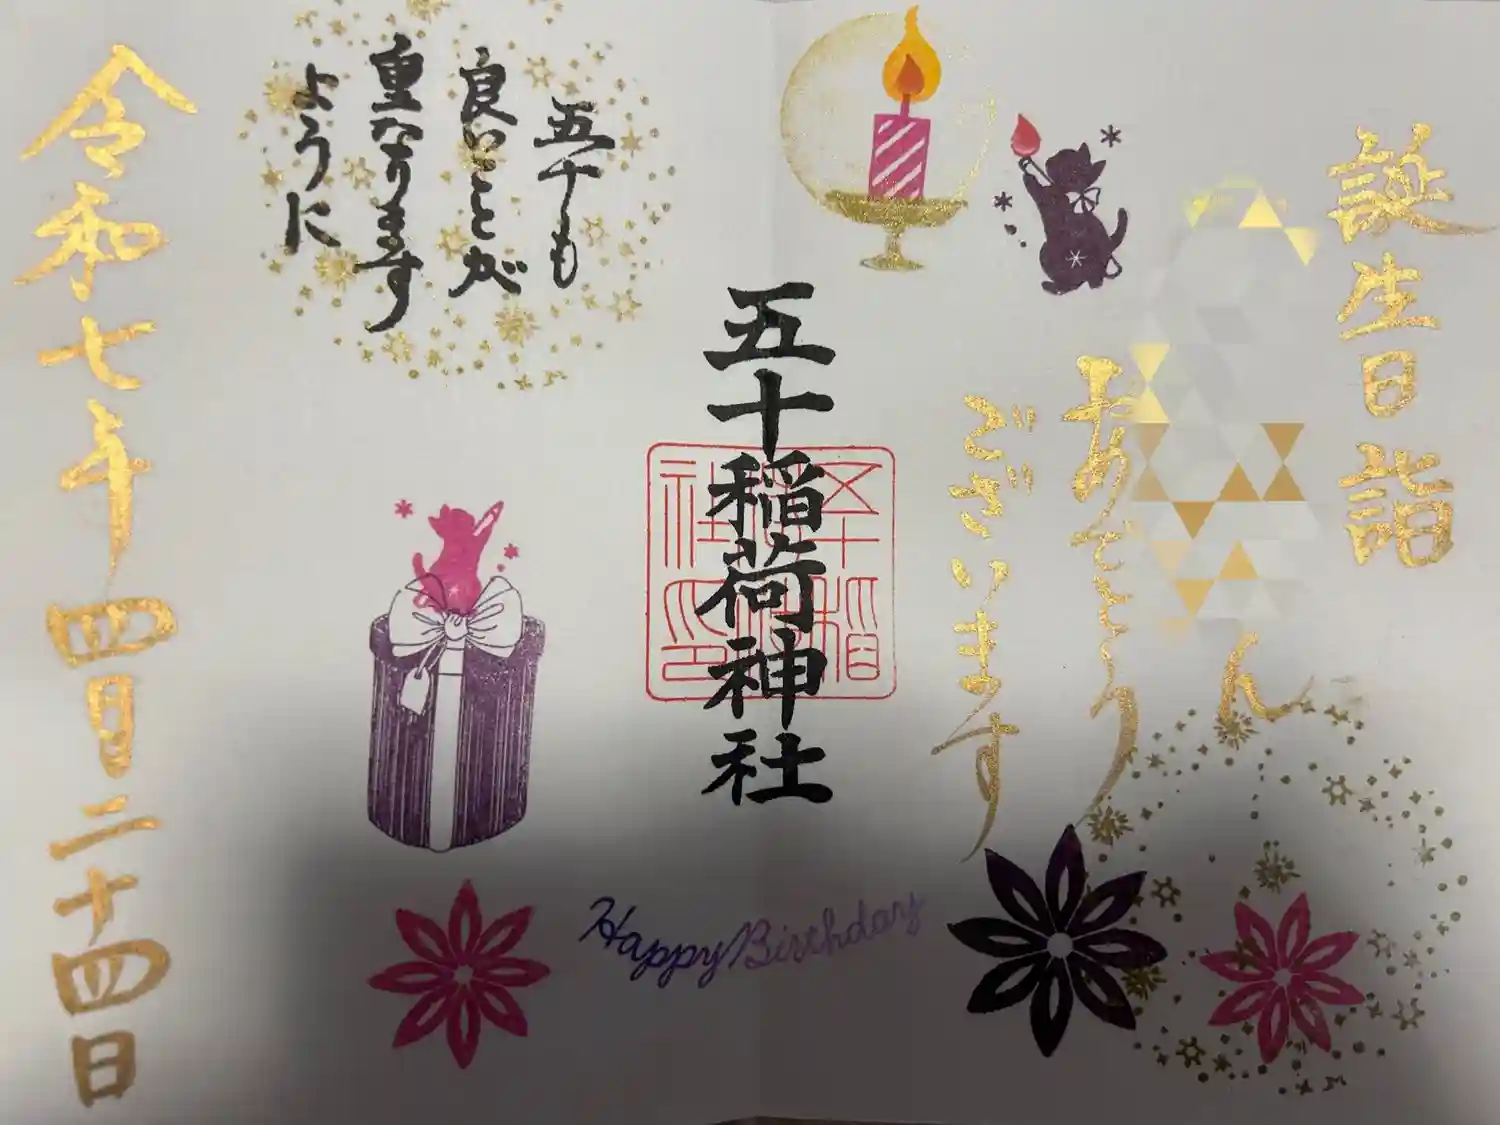 誕生日詣
ん
おめでとう
ございます
五十稲荷神社
五十も
良いことが
重なります
ように
令和七年四月二十四日
Happy Birthday